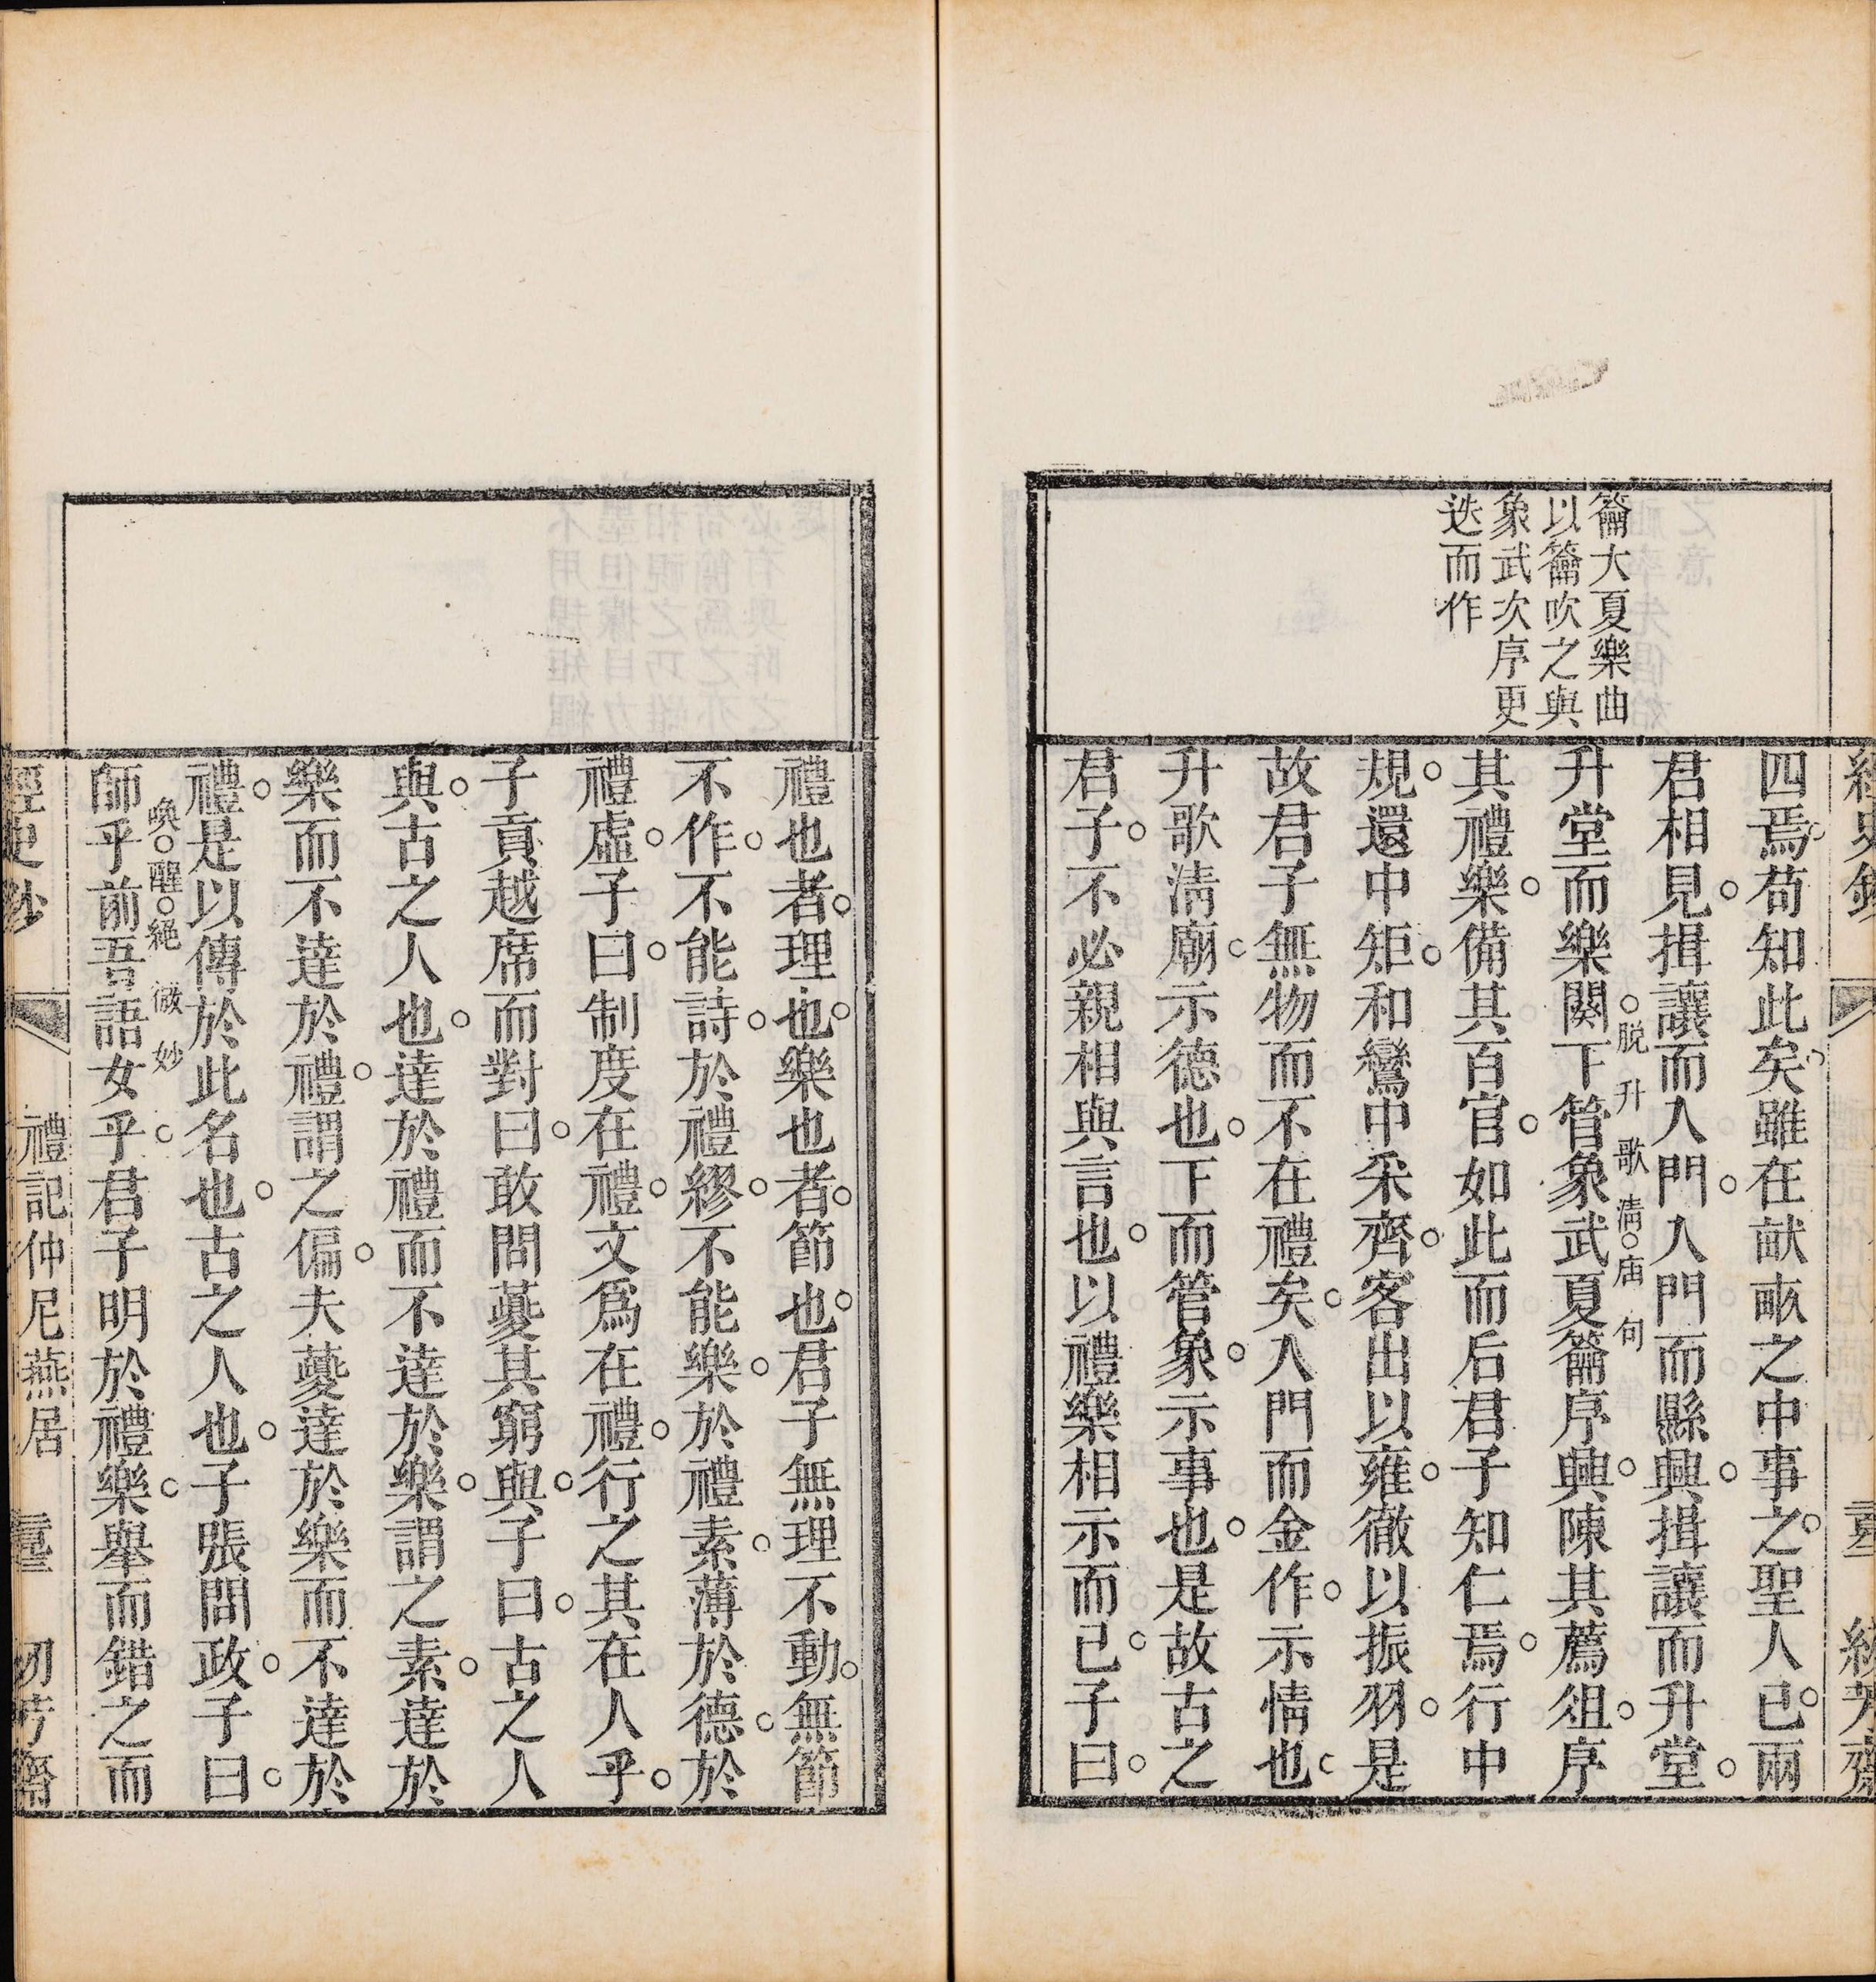 籥大夏樂曲
以籥吹之與
象武次序更
迭而作
四焉苟知此矣雖在畎畝之中事之聖人已兩
君相見揖讓而入門入門而縣興揖讓而升堂
脱升歌清庙句
升堂而樂闋下管象武夏籥序興陳其薦俎序
其禮樂備其百官如此而后君子知仁焉行中
規還中矩和鸞中采齊客出以雍徹以振羽是
故君子無物而不在禮矣入門而金作示情也
升歌淸廟示德也下而管象示事也是故古之
君子不必親相與言也以禮樂相示而已子曰
禮也者理也樂也者節也君子無理不動無節
不作不能詩於禮繆不能樂於禮素薄於德於
禮虛子曰制度在禮文爲在禮行之其在人乎
子貢越席而對曰敢問夔其窮與子曰古之人
與古之人也達於禮而不達於樂謂之素達於
樂而不達於禮謂之偏夫夔達於樂而不達於
禮是以傳於此名也古之人也子張問政子曰
喚醒絕微妙
師乎前吾語女乎君子明於禮樂舉而錯之而
經史鈔
禮記仲尼燕居